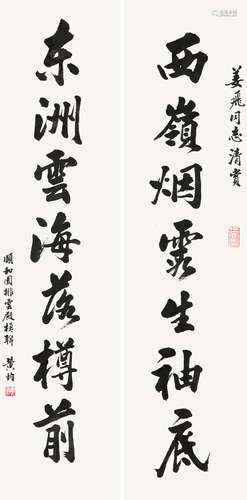 姜飛同志清賞
西嶺烟雲生袖底
东洲雲海落樽前
頤和園排雲殿楹聯 黄均